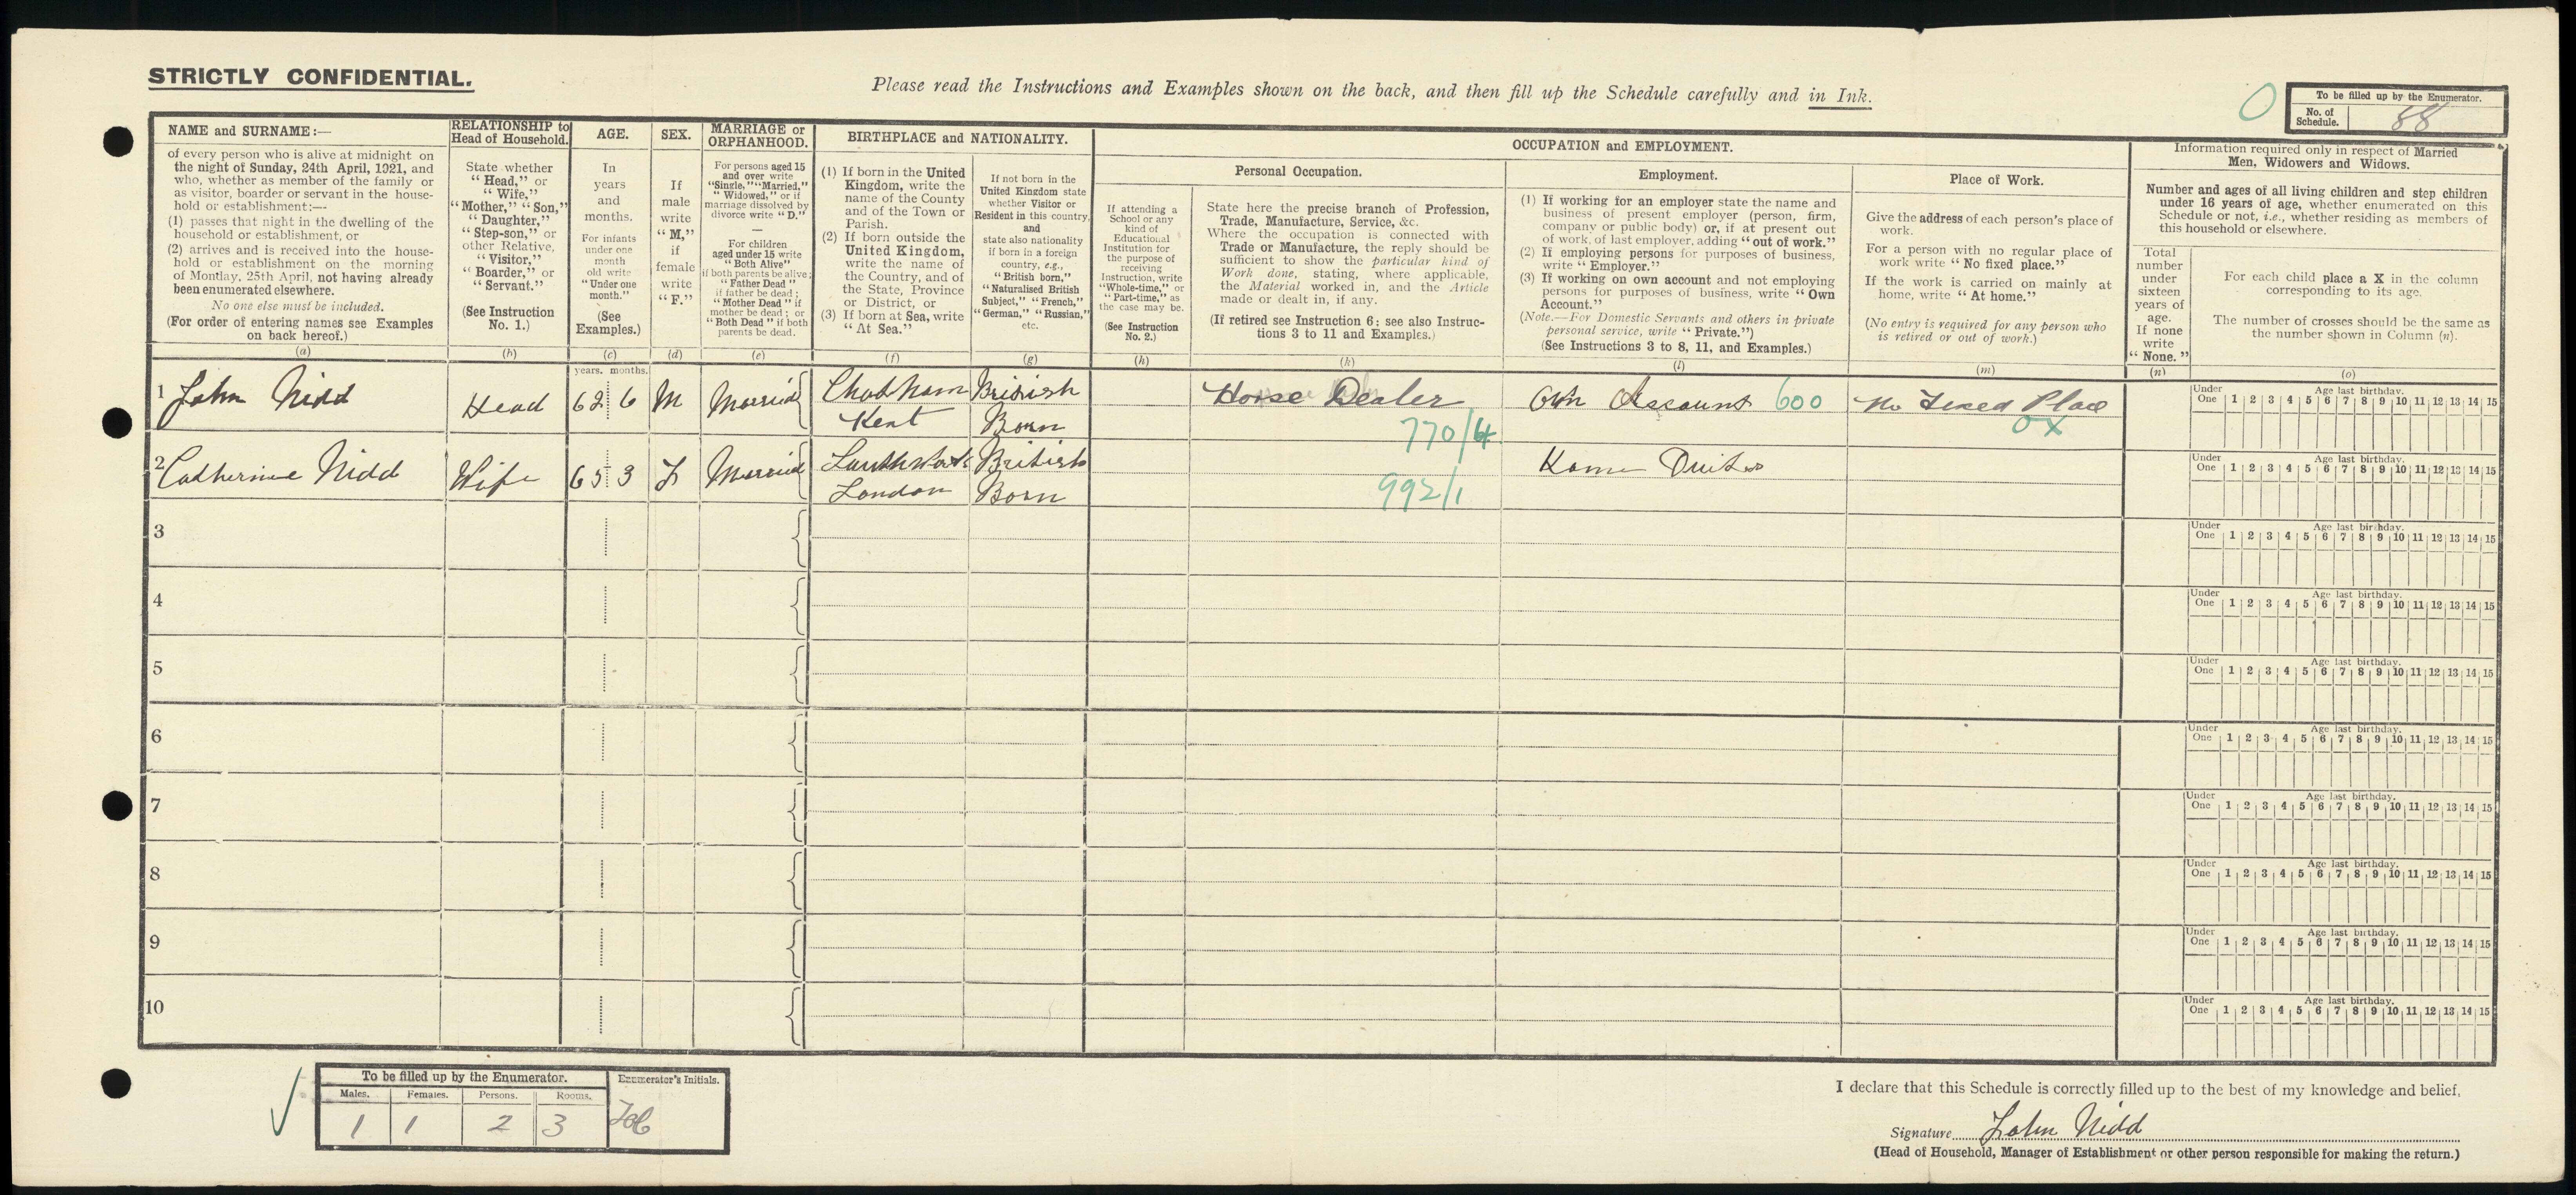 STRICTLY CONFIDENTIAL.
Please read the Instructions and Examples shown on the back, and then fill up the Schedule carefully and in Ink.
0
To be filled up by the Enumerator.
No. of Schedule. 88
NAME and SURNAME:—
of every person who is alive at midnight on
the night of Sunday, 24th April, 1921, and
who, whether as member of the family or
as visitor, boarder or servant in the house-
hold or establishment:—
(1) passes that night in the dwelling of the
household or establishment, or
(2) arrives and is received into the house-
hold or establishment on the morning
of Monday, 25th April, not having already
been enumerated elsewhere.
No one else must be included.
(For order of entering names see Examples
on back hereof.)
(a)
RELATIONSHIP to
Head of Household.
State whether
"Head," or
"Wife,"
"Mother," "Son,"
"Daughter,"
"Step-son," or
other Relative,
"Visitor,"
"Boarder," or
"Servant."
(See Instruction
No. 1.)
(b)
AGE.
In
years
and
months.
For infants
under one
month
old write
"Under one
month."
(See
Examples.)
(c)
SEX.
If
male
write
"M,"
if
female
write
"F."
(d)
MARRIAGE or
ORPHANHOOD.
For persons aged 15
and over write
"Single," "Married,"
"Widowed," or if
marriage dissolved by
divorce write "D."
—
For children
aged under 15 write
"Both Alive"
if both parents be alive;
"Father Dead"
if father be dead;
"Mother Dead" if
mother be dead; or
"Both Dead" if both
parents be dead.
(e)
BIRTHPLACE and NATIONALITY.
(1) If born in the United
Kingdom, write the
name of the County
and of the Town or
Parish.
(2) If born outside the
United Kingdom,
write the name of
the Country, and of
the State, Province
or District, or
(3) If born at Sea, write
"At Sea."
(f)
If not born in the
United Kingdom state
whether Visitor or
Resident in this country,
and
state also nationality
if born in a foreign
country, e.g.,
"British born,"
"Naturalised British
Subject," "French,"
"German," "Russian,"
etc.
(g)
OCCUPATION and EMPLOYMENT.
Personal Occupation.
If attending a
School or any
kind of
Educational
Institution for
the purpose of
receiving
Instruction, write
"Whole-time," or
"Part-time," as
the case may be.
(See Instruction
No. 2.)
(h)
State here the precise branch of Profession,
Trade, Manufacture, Service, &c.
Where the occupation is connected with
Trade or Manufacture, the reply should be
sufficient to show the particular kind of
Work done, stating, where applicable,
the Material worked in, and the Article
made or dealt in, if any.
(If retired see Instruction 6; see also Instruc-
tions 3 to 11 and Examples.)
(k)
Employment.
(1) If working for an employer state the name and
business of present employer (person, firm,
company or public body) or, if at present out
of work, of last employer, adding "out of work."
(2) If employing persons for purposes of business,
write "Employer."
(3) If working on own account and not employing
persons for purposes of business, write "Own
Account."
(Note.—For Domestic Servants and others in private
personal service, write "Private.")
(See Instructions 3 to 8, 11, and Examples.)
(l)
Place of Work.
Give the address of each person's place of
work.
For a person with no regular place of
work write "No fixed place."
If the work is carried on mainly at
home, write "At home."
(No entry is required for any person who
is retired or out of work.)
(m)
Information required only in respect of Married
Men, Widowers and Widows.
Number and ages of all living children and step children
under 16 years of age, whether enumerated on this
Schedule or not, i.e., whether residing as members of
this household or elsewhere.
Total
number
under
sixteen
years of
age.
If none
write
"None."
(n)
For each child place a X in the column
corresponding to its age.
The number of crosses should be the same as
the number shown in Column (n).
(o)
years. months.
1 John Nidd Head 62 6 M Married Chatham Kent British Born Horse Dealer 770/4 Own Account 600 No Fixed Place 0X
Under One Age last birthday. 1 2 3 4 5 6 7 8 9 10 11 12 13 14 15
2 Catherine Nidd Wife 65 3 F Married Southwark London British Born 992/1 Home Duties
Under One Age last birthday. 1 2 3 4 5 6 7 8 9 10 11 12 13 14 15
3
Under One Age last birthday. 1 2 3 4 5 6 7 8 9 10 11 12 13 14 15
4
Under One Age last birthday. 1 2 3 4 5 6 7 8 9 10 11 12 13 14 15
5
Under One Age last birthday. 1 2 3 4 5 6 7 8 9 10 11 12 13 14 15
6
Under One Age last birthday. 1 2 3 4 5 6 7 8 9 10 11 12 13 14 15
7
Under One Age last birthday. 1 2 3 4 5 6 7 8 9 10 11 12 13 14 15
8
Under One Age last birthday. 1 2 3 4 5 6 7 8 9 10 11 12 13 14 15
9
Under One Age last birthday. 1 2 3 4 5 6 7 8 9 10 11 12 13 14 15
10
Under One Age last birthday. 1 2 3 4 5 6 7 8 9 10 11 12 13 14 15
To be filled up by the Enumerator.
Enumerator's Initials.
Males. Females. Persons. Rooms.
1 1 2 3
I declare that this Schedule is correctly filled up to the best of my knowledge and belief,
Signature John Nidd
(Head of Household, Manager of Establishment or other person responsible for making the return.)